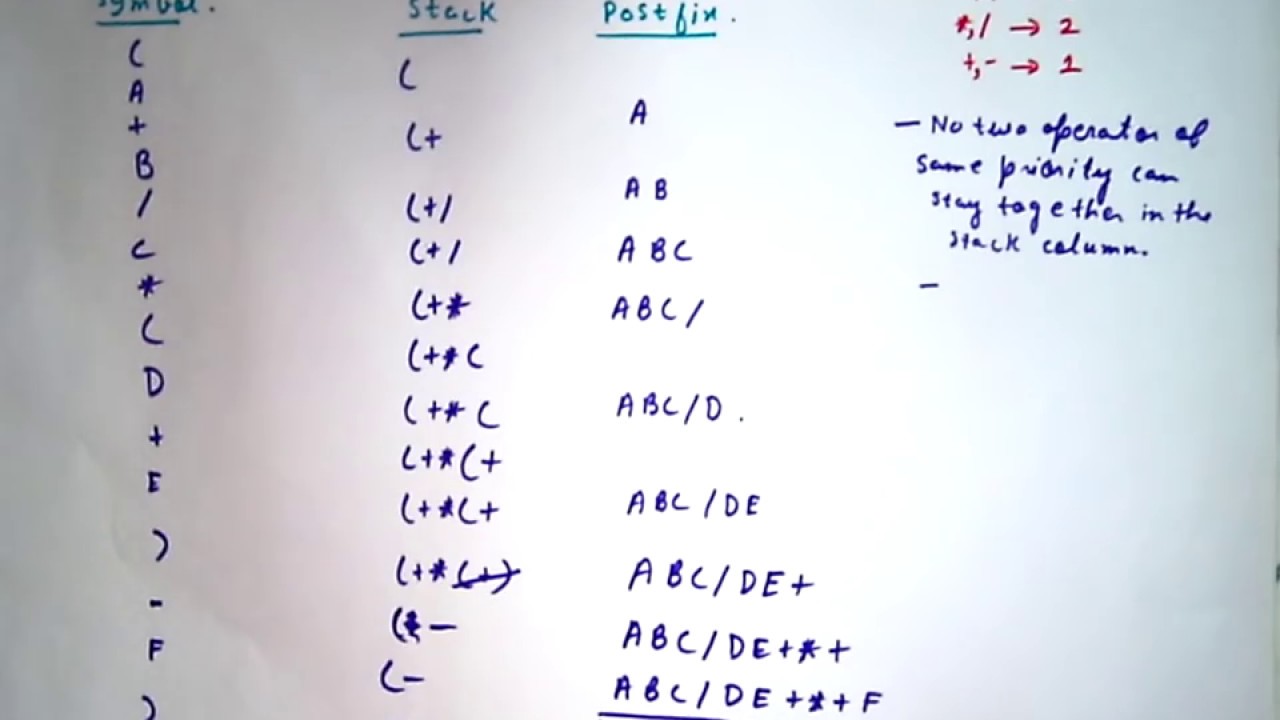 Symbol. Stack Postfix.
*,/ → 2
+,- → 1
( (
A A
+ (+
B A B
/ (+/
C (+/ A B C
* (+* A B C /
( (+*(
D (+*( A B C / D .
+ (+*(+
E (+*(+ A B C / D E
) (+*(+) A B C / D E +
- (- A B C / D E + * +
F (- A B C / D E + * + F
)
— No two operator of
same priority can
stay together in the
stack column.
—